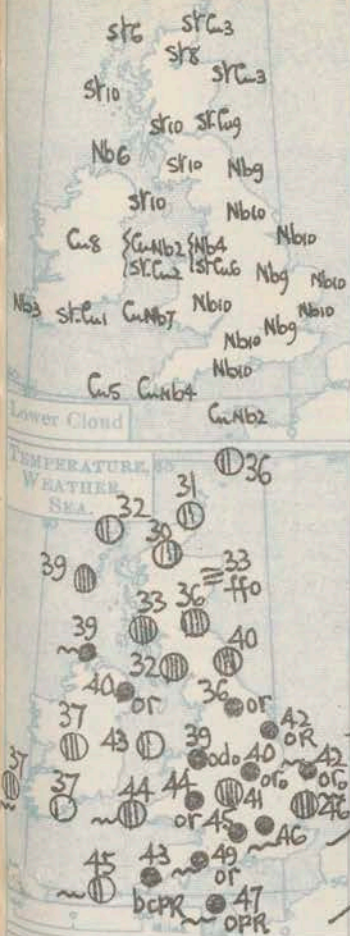 St6 St.Cu3
St8
St.Cu3
St10
St10 St.Cu9
Nb6
St10 Nb9
St10
Nb10
Cu8 {CuNb2 {Nb4 Nb10
{St.Cu2 {St.Cu6 Nb9 Nb10
Nb3 St.Cu1 CuNb7 Nb10 Nb10
Nb10 Nb9
Nb10
Cu5 CuNb4
CuNb2
Lower Cloud
TEMPERATURE,
WEATHER
SEA.
36
31
32
30
39 33
ffo
33 36
39 40
32
40 or 36 or
37 42
43 39 oR
odo 40 42
oro oro
37 44 44 41
or 45 46
43 49
45 or
bcpR 47
OPR